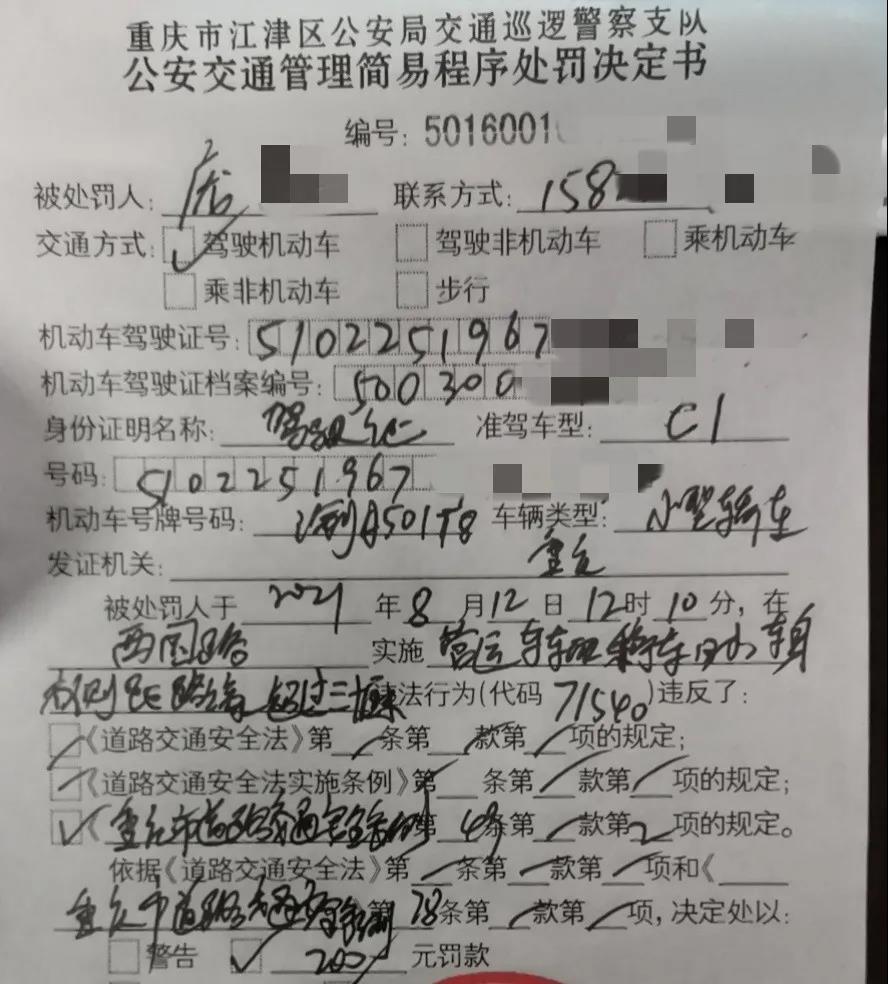 重庆市江津区公安局交通巡逻警察支队
公安交通管理简易程序处罚决定书
编号：5016001
被处罚人： 联系方式：158
交通方式： 驾驶机动车 驾驶非机动车 乘机动车
乘非机动车 步行
机动车驾驶证号：5102251967
机动车驾驶证档案编号：500300
身份证明名称：驾驶证 准驾车型：C1
号码：5102251967
机动车号牌号码： 车辆类型：小型轿车
发证机关：重庆
被处罚人于2021年8月12日12时10分，在
实施营运 车身
超过三十 违法行为（代码71540）违反了：
《道路交通安全法》第 条第 款第 项的规定；
《道路交通安全法实施条例》第 条第 款第 项的规定；
《重庆市道路交通安全条例 第49条第 款第2项的规定。
依据《道路交通安全法》第 条第 款第 项和《
重庆市道路交通安全条例 第78条第 款第 项，决定处以：
警告 ✓ 200元罚款